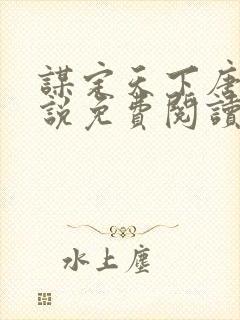 謀定天下唐
說免費閱讀
水上塵